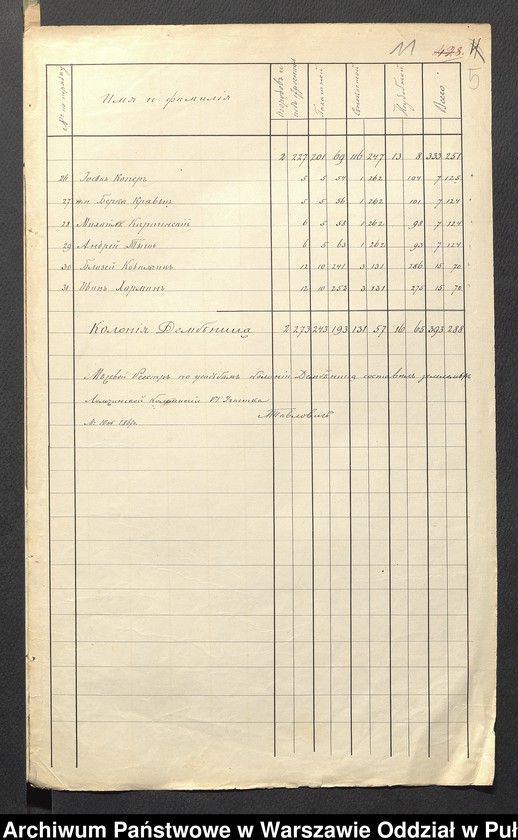 11 428.
№ по порядку Имя и фамилія Пахатной Сѣнокосной Неудобной Всего
2 227 201 69 116 247 13 8 333 251
26 Іосифъ Коперъ 5 5 54 1 262 104 7 125
27 Берка Кравецъ 5 5 56 1 262 101 7 124
28 Михаилъ 6 5 58 1 262 98 7 124
29 Андрей 6 5 63 1 262 93 7 124
30 Блажей Ковальчикъ 12 10 241 3 131 286 15 70
31 Иванъ Харманъ 12 10 252 3 131 275 15 70
Колонія Дембѣница 2 273 243 193 131 57 16 65 393 288
Реестръ по усадьбамъ Колоніи Дембѣница составилъ землемѣръ
Ломжинской Коммисіи VI Участка
Павловичъ
Archiwum Państwowe w Warszawie Oddział w Puł